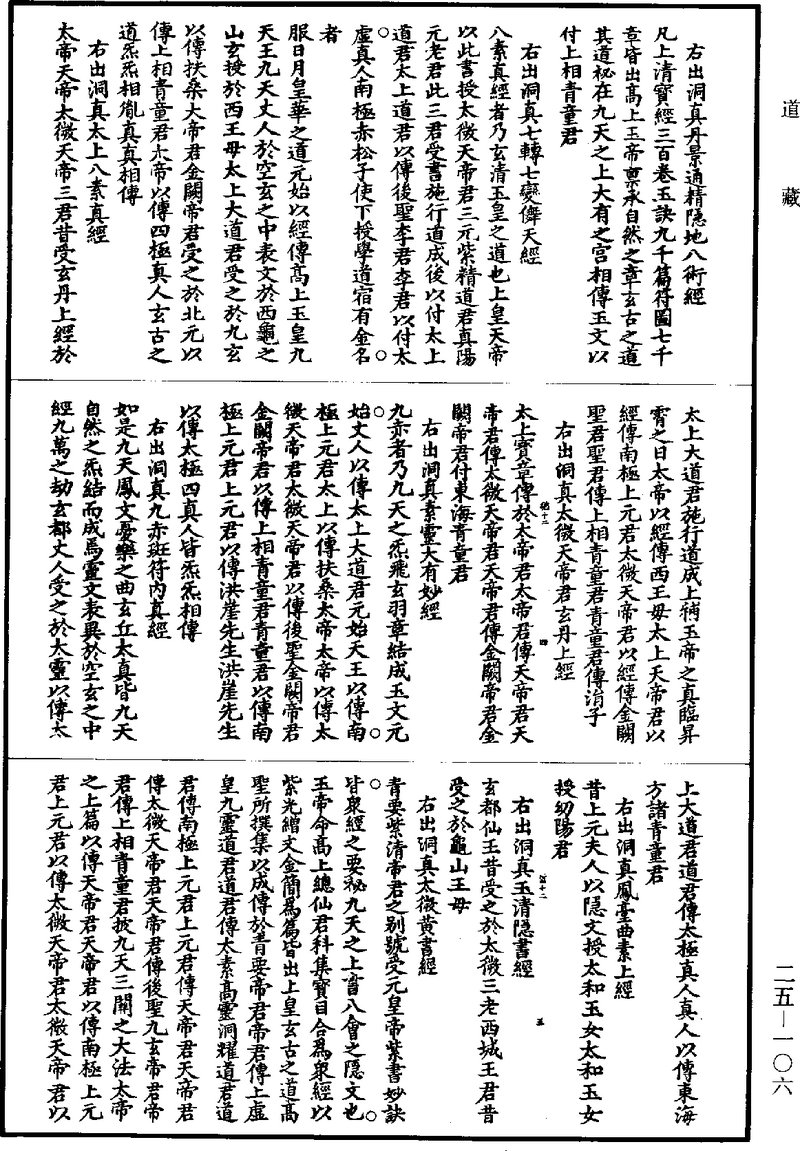 道藏
右出洞真丹景通精隱地八術經
凡上清寶經三百卷玉訣九千篇符圖七千
章皆出高上玉帝稟承自然之章玄古之道
其道祕在九天之上大有之宮相傳玉文以
付上相青童君
右出洞真七轉七變儛天經
八素真經者乃玄清玉皇之道也上皇天帝
以此書授太微天帝君三元紫精道君真陽
元老君此三君受書施行道成後以付太上
道君太上道君以傳後聖李君李君以付太
虛真人南極赤松子使下授學道宿有金名
者
服日月皇華之道元始以經傳高上玉皇九
天王九天丈人於空玄之中表文於西龜之
山玄授於西王母太上大道君受之於九玄
以傳扶桑大帝君金闕帝君受之於北元以
傳上相青童君大帝以傳四極真人玄古之
道炁炁相胤真真相傳
右出洞真太上八素真經
太帝天帝太微天帝三君昔受玄丹上經於
太上大道君施行道成上補玉帝之真臨昇
霄之日太帝以經傳西王母太上天帝君以
經傳南極上元君太微天帝君以經傳金闕
聖君聖君傳上相青童君青童君傳涓子
右出洞真太微天帝君玄丹上經
太上寶章傳於太帝君太帝君傳天帝君天
帝君傳太微天帝君天帝君傳金闕帝君金
闕帝君付東海青童君
右出洞真素靈大有妙經
九赤者乃九天之炁飛玄羽章結成玉文元
始丈人以傳太上大道君元始天王以傳南
極上元君太上以傳扶桑太帝太帝以傳太
微天帝君太微天帝君以傳後聖金闕帝君
金闕帝君以傳上相青童君青童君以傳南
極上元君上元君以傳洪崖先生洪崖先生
以傳太極四真人皆炁炁相傳
右出洞真九赤斑符內真經
如是九天鳳文憂樂之曲玄丘太真皆九天
自然之炁結而成焉靈文表異於空玄之中
經九萬之劫玄都丈人受之於大靈以傳太
上大道君道君傳太極真人真人以傳東海
方諸青童君
右出洞真鳳臺曲素上經
昔上元夫人以隱文授太和玉女太和玉女
授幼陽君
右出洞真玉清隱書經
玄都仙王昔受之於太微三老西城王君昔
受之於龜山王母
右出洞真太微黃書經
青要紫清帝君之別號受元皇帝紫書妙訣
皆眾經之要秘九天之上音八會之隱文也
玉帝命高上總仙君科集寶目合為眾經以
紫光繒文金簡為篇皆出上皇玄古之道高
聖所撰集以成傳於青要帝君帝君傳上虛
皇九靈道君道君傳太素高靈洞耀道君道
君傳南極上元君上元君傳天帝君天帝君
傳太微天帝君天帝君傳後聖九玄帝君帝
君傳上相青童君披九天三關之大法太帝
之上篇以傳天帝君天帝君以傳南極上元
君上元君以傳太微天帝君太微天帝君以
二五—一〇六